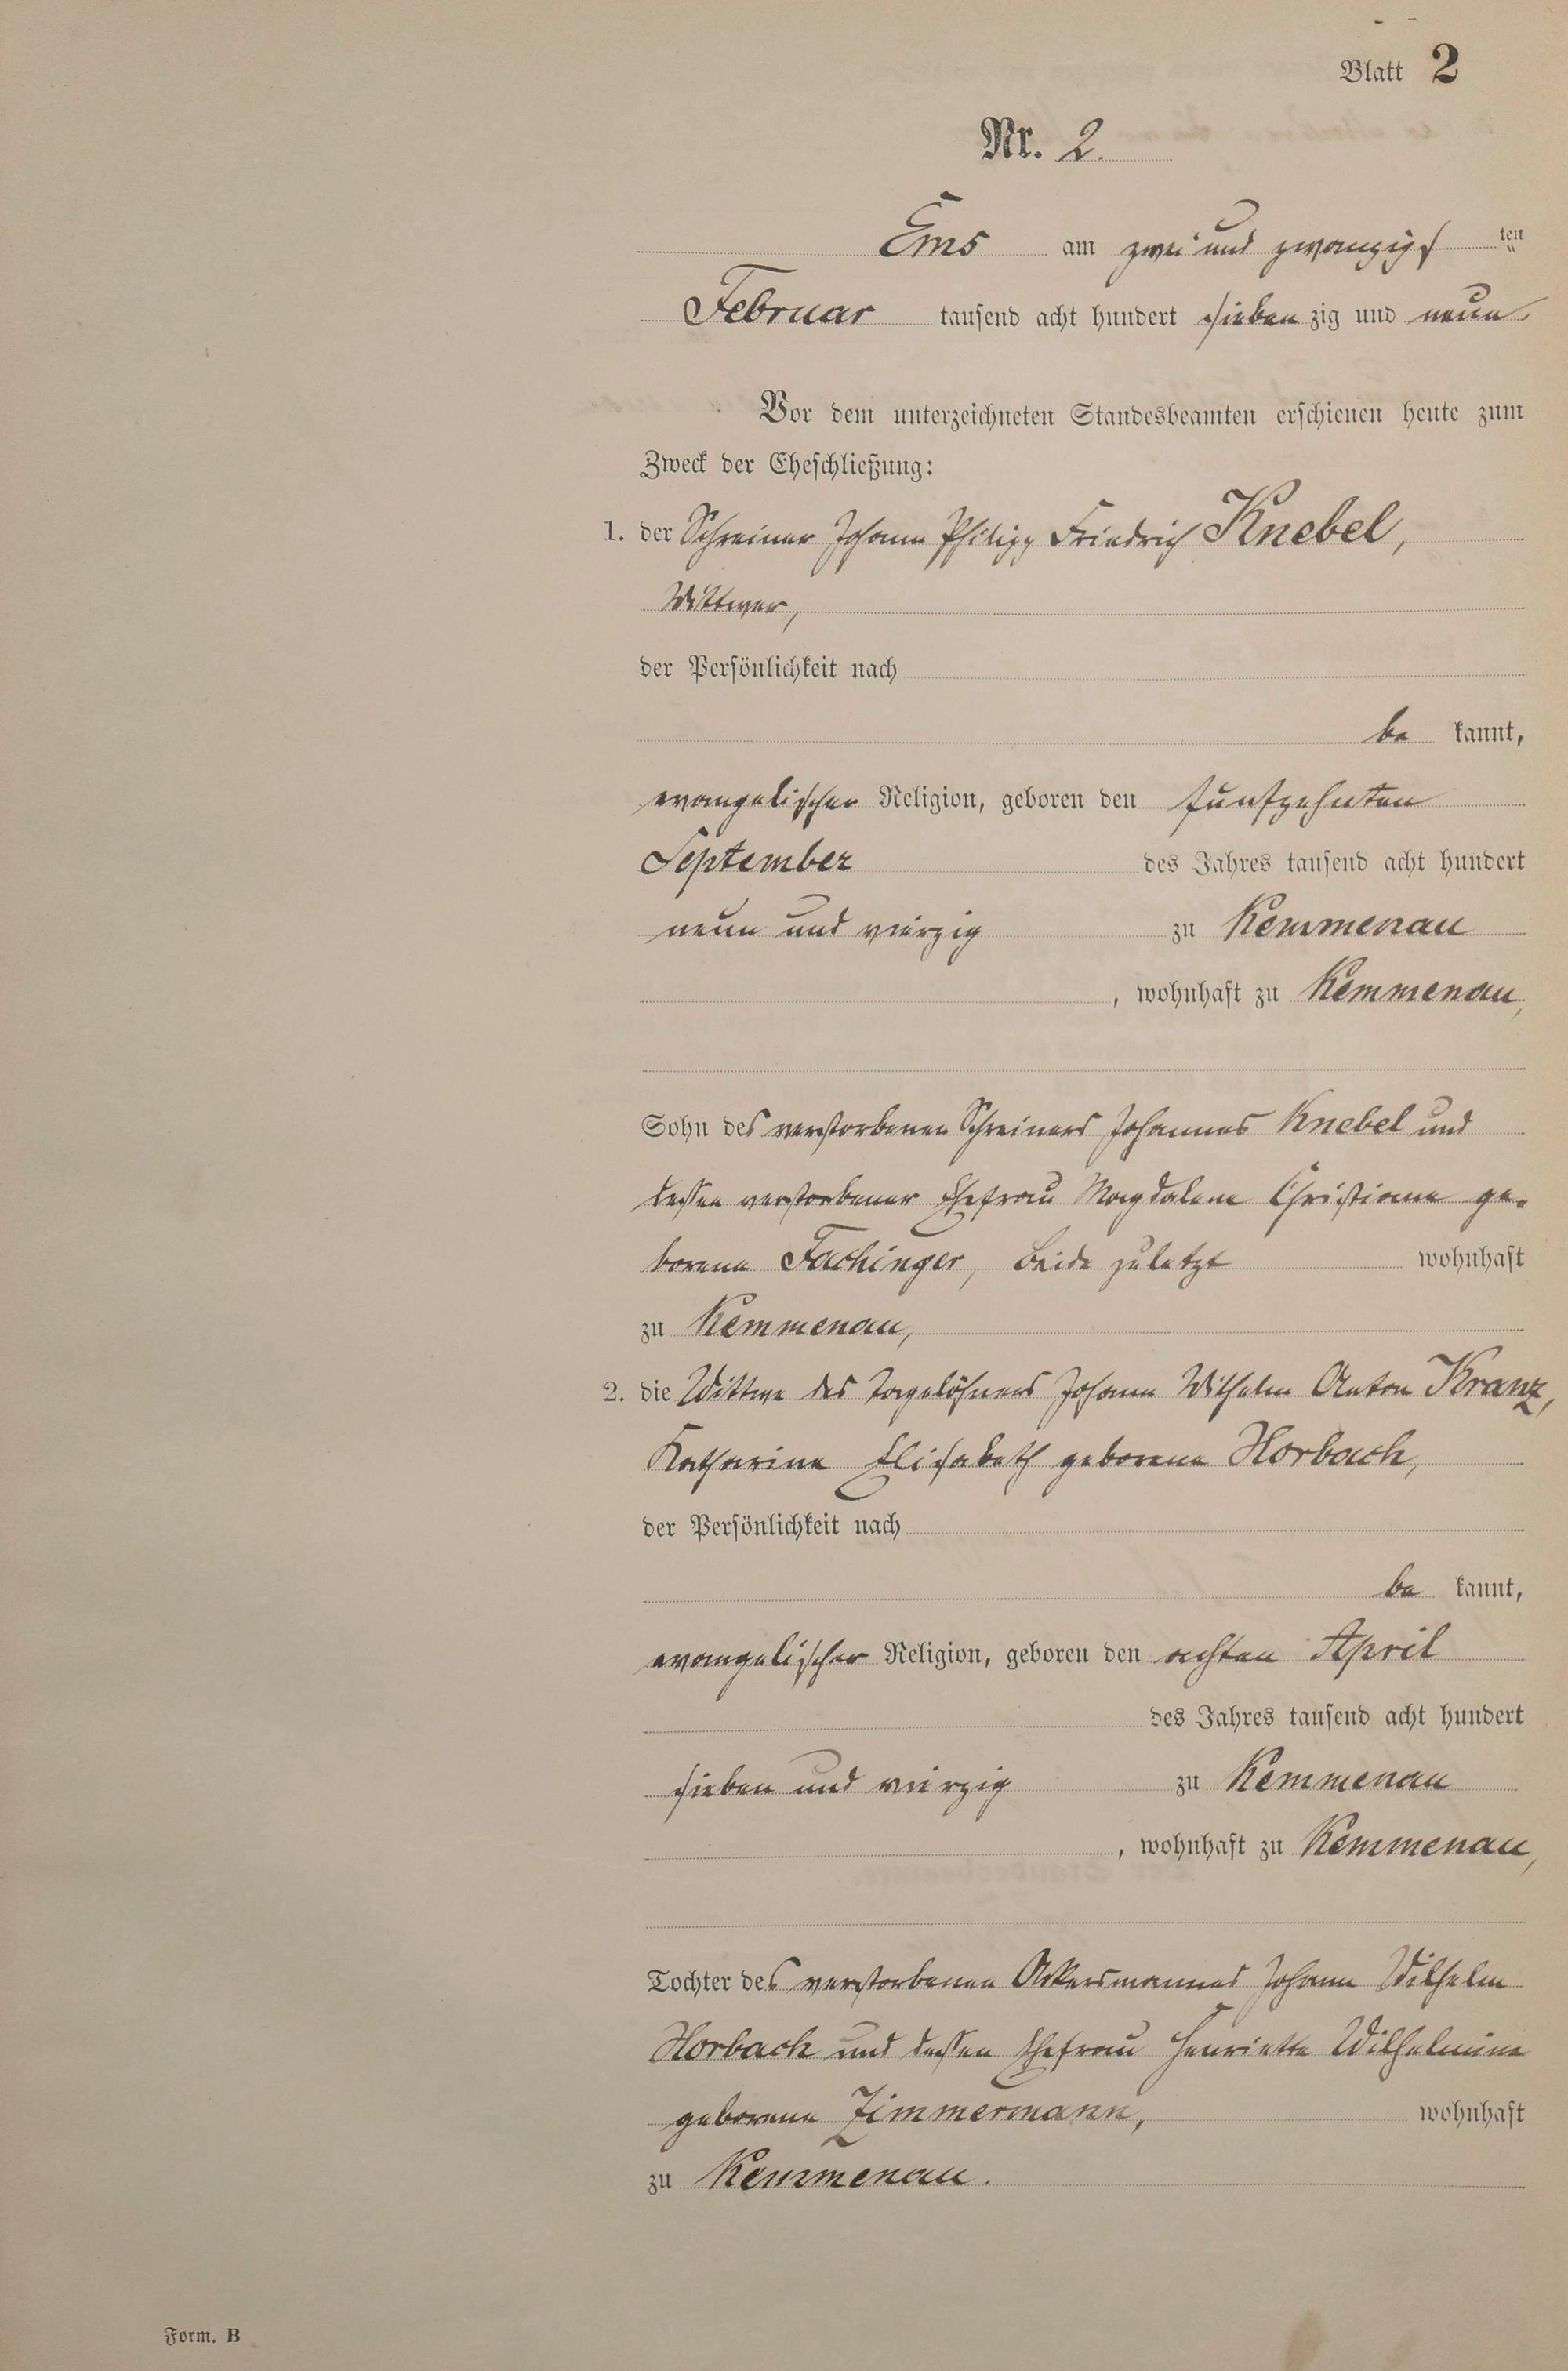 Blatt 2
Nr. 2.
Ems am zwei und zwanzigsten
Februar tausend acht hundert sieben zig und neun.
Vor dem unterzeichneten Standesbeamten erschienen heute zum
Zweck der Eheschließung:
1. der Schreiner Johann Philipp Friedrich Knebel,
Wittwer,
der Persönlichkeit nach
be kannt,
evangelischer Religion, geboren den fünfzehnten
September des Jahres tausend acht hundert
neun und vierzig zu Kemmenau
, wohnhaft zu Kemmenau,
Sohn des verstorbenen Schreiners Johannes Knebel und
dessen verstorbener Ehefrau Magdalene Christiane ge-
borene Fachinger, beide zuletzt wohnhaft
zu Kemmenau,
2. die Wittwe des Tagelöhners Johann Wilhelm Anton Kranz,
Katharine Elisabeth geborene Horbach,
der Persönlichkeit nach
be kannt,
evangelischer Religion, geboren den achten April
des Jahres tausend acht hundert
sieben und vierzig zu Kemmenau
, wohnhaft zu Kemmenau,
Tochter des verstorbenen Ackersmannes Johann Wilhelm
Horbach und dessen Ehefrau Henriette Wilhelmine
geborene Zimmermann, wohnhaft
zu Kemmenau.
Form. B